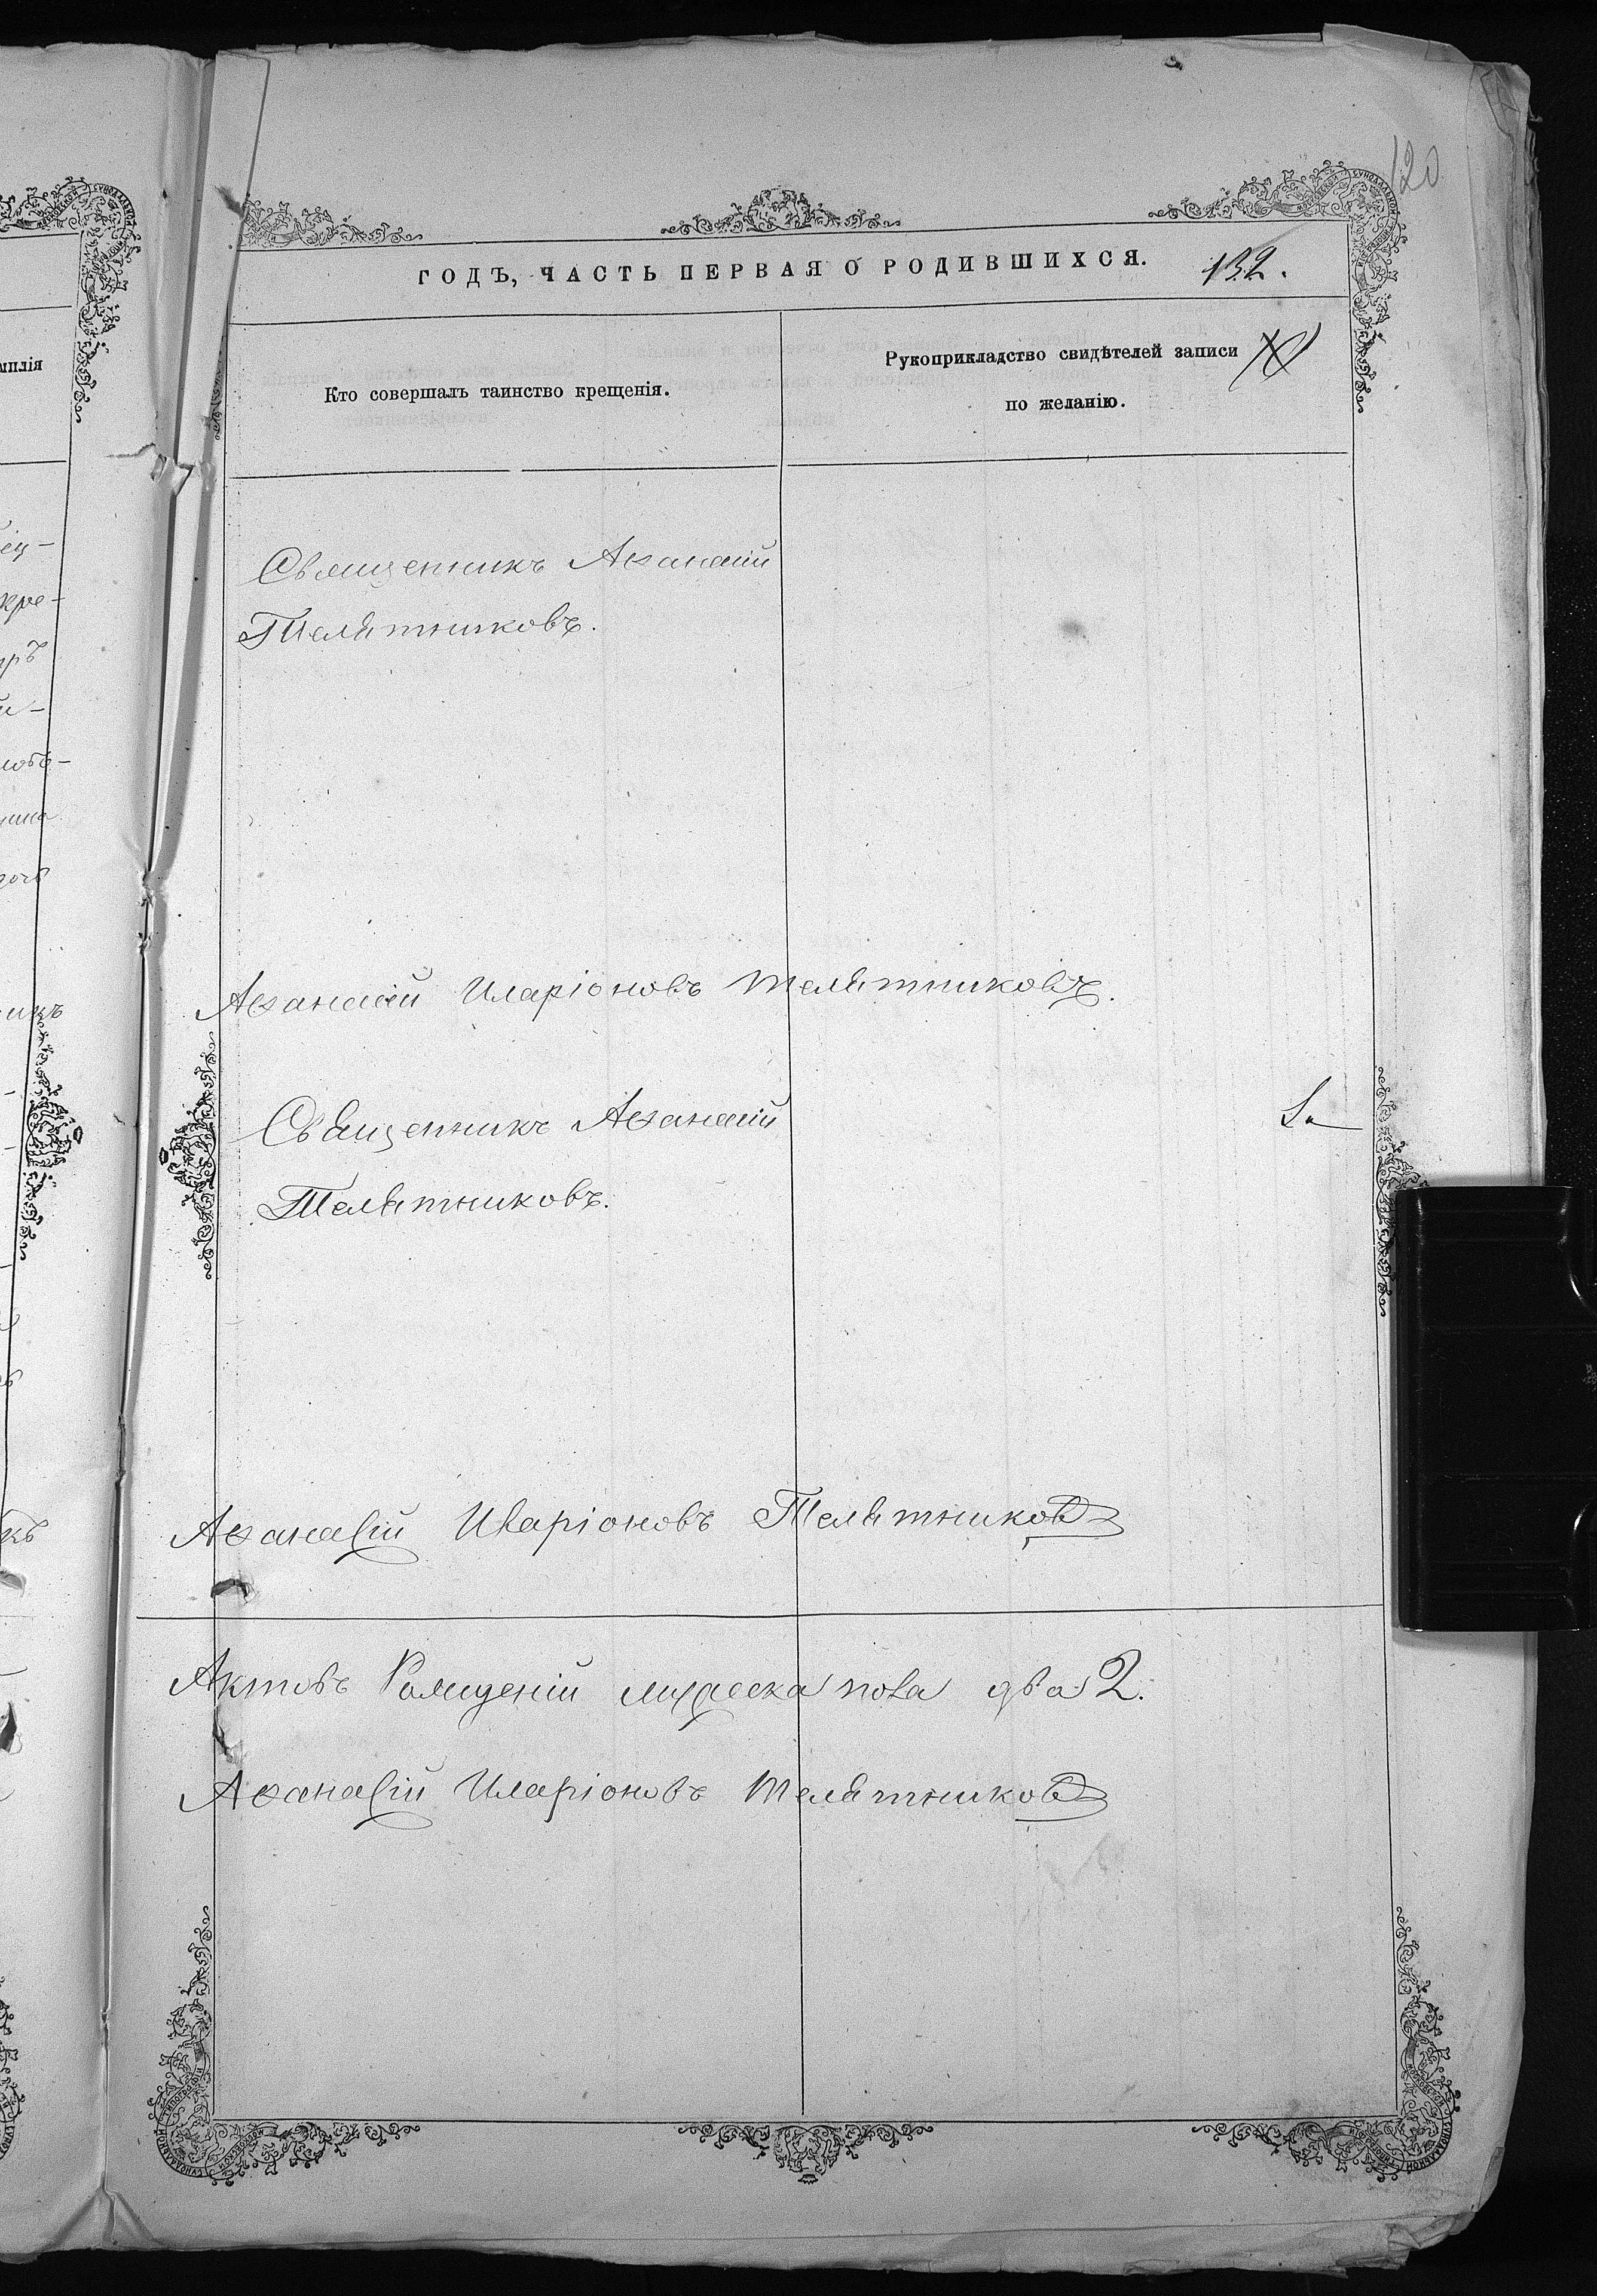 120
ГОДЪ, ЧАСТЬ ПЕРВАЯ О РОДИВШИХСЯ. 132.
Кто совершалъ таинство крещенія.
Рукоприкладство свидѣтелей записи
по желанію.
Священникъ Аѳанасій
Телятниковъ.
Аѳанасій Иларіоновъ Телятниковъ.
Священникъ Аѳанасій
Телятниковъ.
Аѳанасій Иларіоновъ Телятниковъ
Актовъ два 2.
Аѳанасій Иларіоновъ Телятниковъ